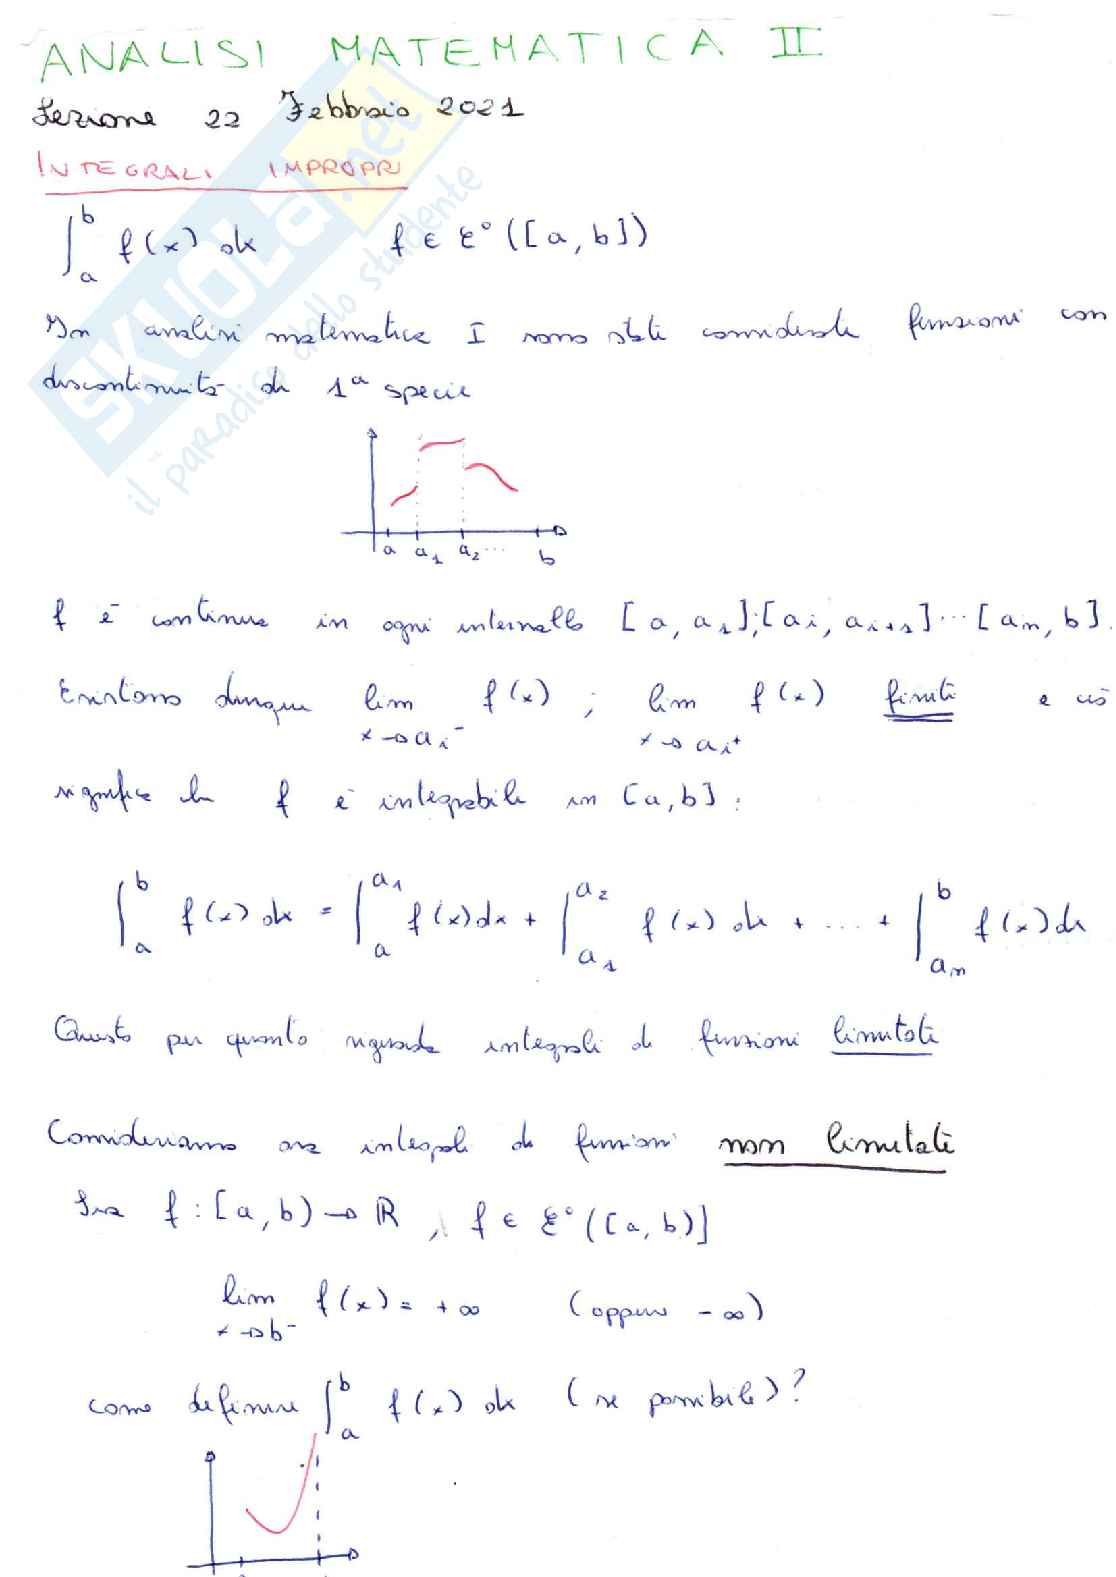 ANALISI MATEMATICA II
Lezione 22 Febbraio 2021
INTEGRALI IMPROPRI
∫_a^b f(x) dx f ∈ C°([a, b])
In analisi matematica I sono state considerate funzioni con
discontinuità di 1ª specie
a a₁ a₂ ... b
f è continua in ogni intervallo [a, a₁]; [aᵢ, aᵢ₊₁] ... [aₙ, b].
Esistono dunque lim_{x→aᵢ⁻} f(x) ; lim_{x→aᵢ⁺} f(x) finiti e ciò
significa che f è integrabile in [a, b] :
∫_a^b f(x) dx = ∫_a^{a₁} f(x) dx + ∫_{a₁}^{a₂} f(x) dx + .... + ∫_{aₙ}^b f(x) dx
Questo per quanto riguarda integrali di funzioni limitate
Consideriamo ora integrali di funzioni non limitate
Sia f : [a, b) → ℝ , f ∈ C°([a, b)]
lim_{x→b⁻} f(x) = +∞ (oppure -∞)
come definire ∫_a^b f(x) dx (se possibile)?
SKUOLA.net
il paradiso dello studente